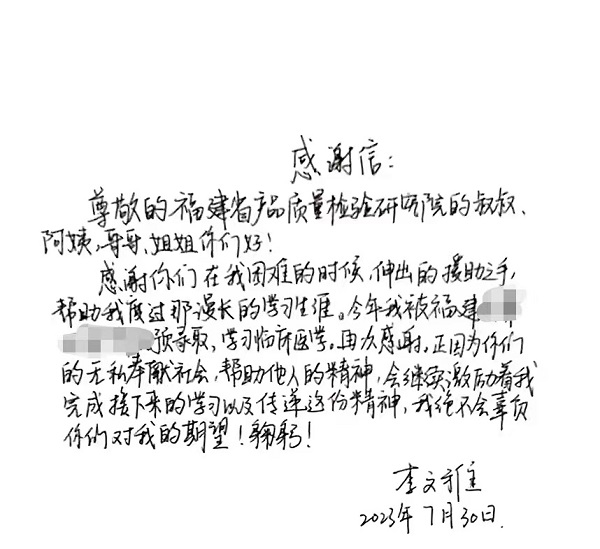 感谢信：
尊敬的福建省产品质量检验研究院的叔叔、
阿姨，哥哥、姐姐你们好！
感谢你们在我困难的时候，伸出的援助之手，
帮助我度过那漫长的学习生涯。今年我被福建
预录取，学习临床医学。再次感谢，正因为你们
的无私奉献社会，帮助他人的精神，会继续激励着我
完成接下来的学习以及传递这份精神，我绝不会辜负
你们对我的期望！鞠躬！
李文雅
2023年7月30日.